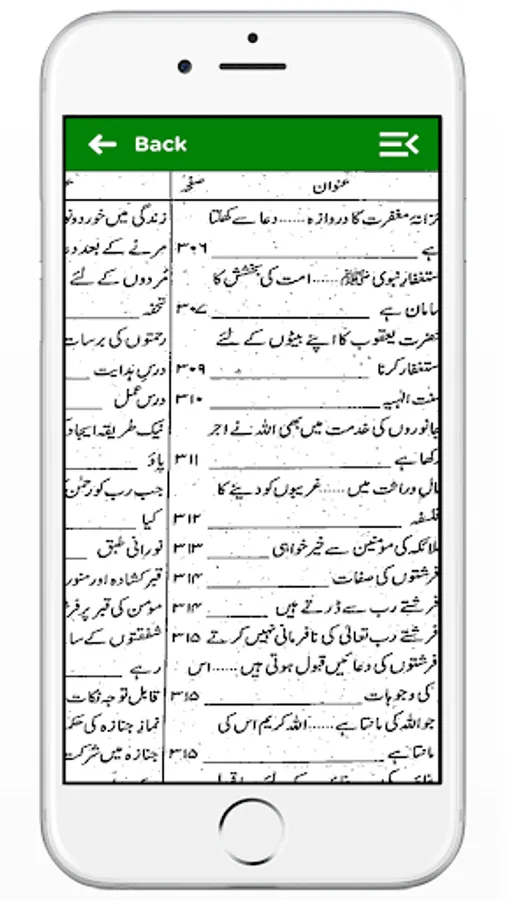 Back
عنوان
صفحہ
خزانۂ مغفرت کا دروازہ......دعا سے کھلتا
ہے ۳۰۶
استغفارِ نبوی ﷺ......امت کی بخشش کا
سامان ہے ۳۰۷
حضرت یعقوب کا اپنے بیٹوں کے لئے
استغفار کرنا ۳۰۹
سنت الٰہیہ ۳۱۰
جانوروں کی خدمت میں بھی اللہ نے اجر
رکھا ہے ۳۱۱
مالِ وراثت میں......غریبوں کو دینے کا
فلسفہ ۳۱۲
ملائکہ کی مؤمنین سے خیر خواہی ۳۱۳
فرشتوں کی صفات ۳۱۴
فرشتے رب سے ڈرتے ہیں ۳۱۴
فرشتے رب تعالیٰ کی نافرمانی نہیں کرتے ۳۱۵
فرشتوں کی دعائیں قبول ہوتی ہیں......اس
کی وجوہات ۳۱۵
جو اللہ کی مانتا ہے......اللہ کریم اس کی
مانتا ہے ۳۱۵
زندگی میں خورد و نو
مرنے کے بعد دع
مُردوں کے لئے
تحفہ
رحمتوں کی برسات
درسِ ہدایت
درسِ عمل
نیک طریقہ ایجاد ک
پاؤ
جب رب کو رحمٰن
کیا
نورانی طبق
قبر کشادہ اور منور
مؤمن کی قبر پر فرش
شفقتوں کے سا
رہے
قابل توجہ نکات
نماز جنازہ کی حکم
جنازہ میں شرکت